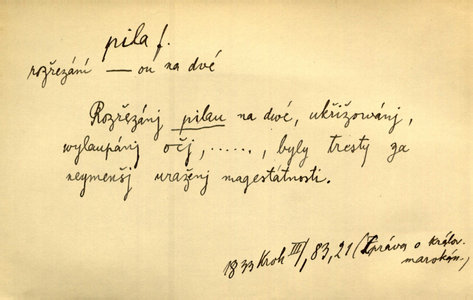 pila f.
rozřezání — ou na dvé
Rozřezánj pilau na dvé, ukřižowánj,
wylaupánj očj, ......, byly tresty za
neymenšj uraženj magestátnosti.
1833 Krok III/, 83, 21 (Zpráva o králov.
marokán.)